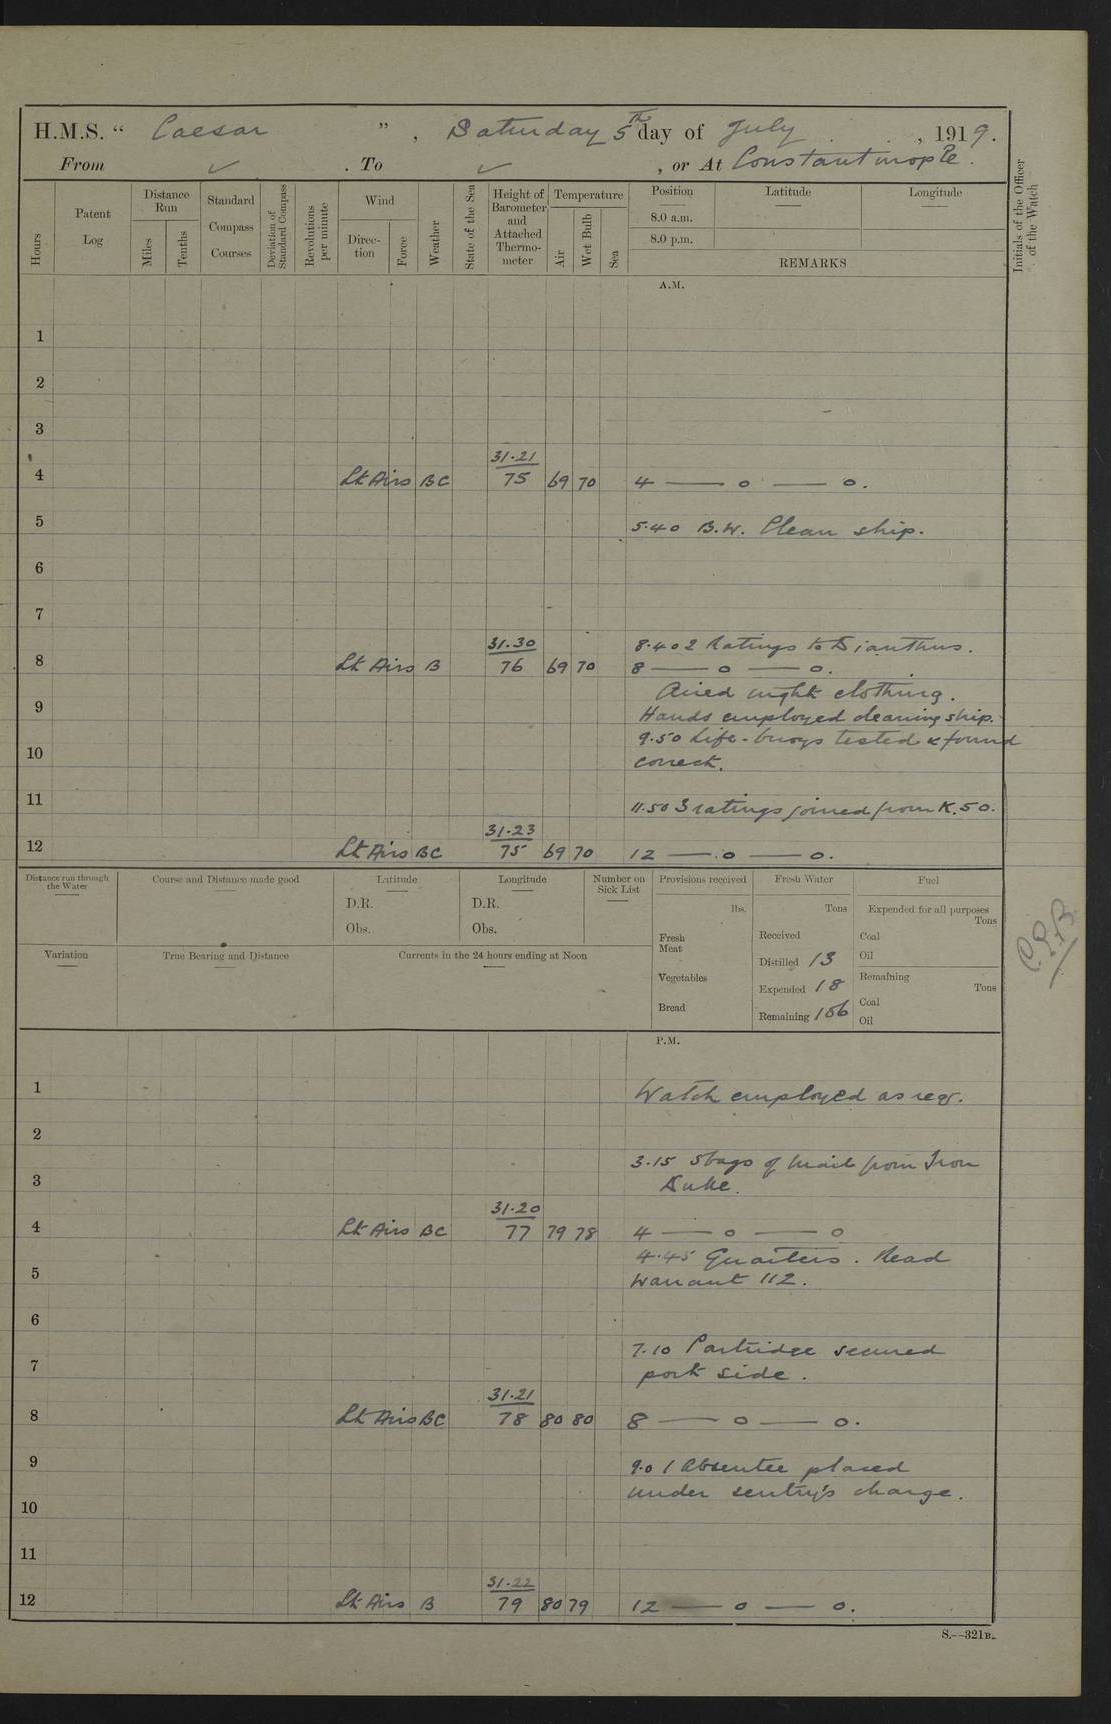 H.M.S. “ Caesar ” , Saturday 5th day of July , 1919.
From ✓ . To ✓ , or At Constantinople .
Hours
Patent Log
Distance Run
Miles
Tenths
Standard Compass Courses
Deviation of Standard Compass
Revolutions per minute
Wind
Direction
Force
Weather
State of the Sea
Height of Barometer and Attached Thermometer
Temperature
Air
Wet Bulb
Sea
Position
Latitude
Longitude
8.0 a.m.
8.0 p.m.
REMARKS
Initials of the Officer of the Watch
A.M.
1
2
3
31.21
4 Lt Airs BC 75 69 70 4 — o — o.
5 5.40 B.W. Clean ship.
6
7
31.30 8.40 2 Ratings to Dianthus.
8 Lt Airs B 76 69 70 8 — o — o.
Aired night clothing.
9 Hands employed cleaning ship.
9.50 Life-buoys tested & found
10 correct.
11 11.50 3 ratings joined from K.50.
31.23
12 Lt Airs BC 75 69 70 12 — o — o.
Distance run through the Water
Course and Distance made good
Latitude
D.R.
Obs.
Longitude
D.R.
Obs.
Number on Sick List
Provisions received
lbs.
Fresh Meat
Vegetables
Bread
Fresh Water
Tons
Received
Distilled 13
Expended 18
Remaining 156
Fuel
Expended for all purposes
Tons
Coal
Oil
Remaining
Tons
Coal
Oil
Variation
True Bearing and Distance
Currents in the 24 hours ending at Noon
P.M.
1 Watch employed as req.
2
3.15 5 bags of mail from Iron
3 Duke.
31.20
4 Lt Airs BC 77 79 78 4 — o — o
4.45 Quarters. Read
5 Warrant 112.
6
7.10 Partridge secured
7 port side.
31.21
8 Lt Airs BC 78 80 80 8 — o — o.
9 9.0 1 Absentee placed
under sentry's charge.
10
11
31.22
12 Lt Airs B 79 80 79 12 — o — o.
S.—321B.